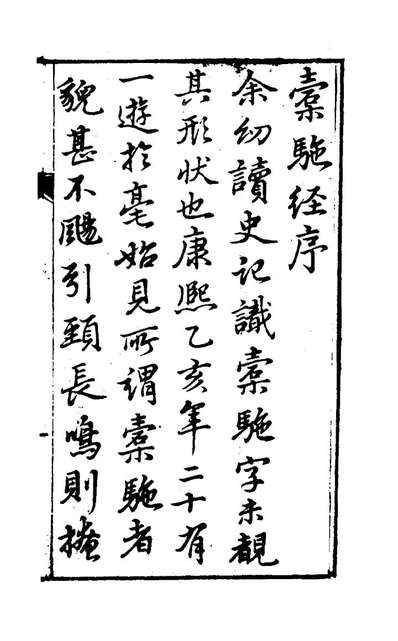 橐駞经序
余幼讀史记識橐駞字未覩
其形状也康熙乙亥年二十有
一遊於亳始見所謂橐駞者
貌甚不颺引頸長鳴則掩